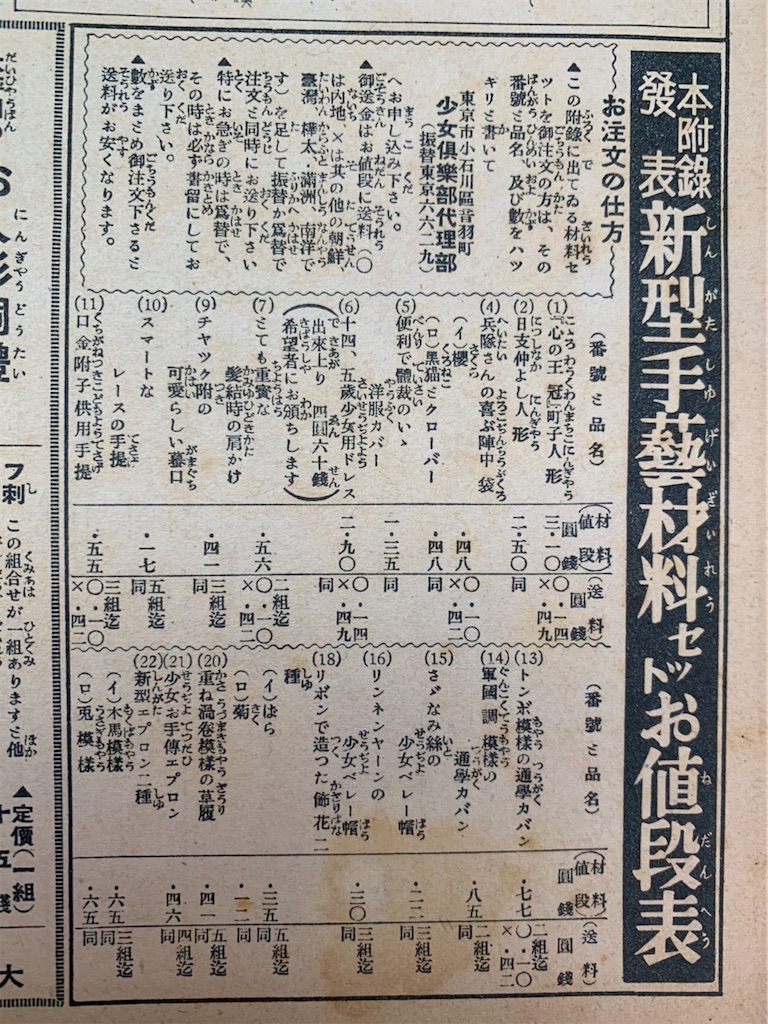 本附錄
發表
新型手藝材料セットお値段表
お注文の仕方
▲この附錄に出てゐる材料セ
ットを御注文の方は、その
番號と品名、及び數をハツ
キリと書いて
東京市小石川區音羽町
少女俱樂部代理部
(振替東京六六二九)
へお申し込み下さい。
▲御送金はお値段に送料(〇
は內地、×は其の他の朝鮮、
臺灣、樺太、滿洲、南洋で
す)を足して振替か爲替で
注文と同時にお送り下さい
▲特にお急ぎの時は爲替で、
その時は必ず書留にしてお
送り下さい。
▲數をまとめ御注文下さると
送料がお安くなります。
(番號と品名)
(1)『心の王冠』町子人形
(2)日支仲よし人形
(4)兵隊さんの喜ぶ陣中袋
(イ)櫻
(ロ)黑猫とクローバー
(5)便利で體裁のいゝ
洋服カバー
(6)十四、五歲少女用ドレス
(出來上り 四圓六十錢
希望者にお頒ちします)
(7)とても重寶な
髮結時の肩かけ
(9)チヤツク附の
可愛らしい蟇口
(10)スマートな
レースの手提
(11)口金附子供用手提
(材料値段)
圓錢
三・一〇
二・五〇
・四八
・四八
一・三五
二・九〇
・五六
・四一
・一七
・五五
(送料)
圓錢
〇・一四
×・四九
同
〇・一〇
×・四二
同
同
〇・一四
×・四九
同
二組迄
〇・一〇
×・四二
三組迄
同
五組迄
同
三組迄
〇・一〇
×・四二
(番號と品名)
(13)トンボ模樣の通學カバン
(14)軍國調模樣の
通學カバン
(15)さゞなみ絲の
少女ベレー帽
(16)リンネンヤーンの
少女ベレー帽
(18)リボンで造つた飾花二
種
(イ)ばら
(ロ)菊
(20)重ね渦卷模樣の草履
(21)少女お手傳エプロン
(22)新型エプロン二種
(イ)木馬模樣
(ロ)兎模樣
(材料値段)
圓錢
・七七
・八五
・二二
・三〇
・三五
・一二
・四一
・四六
・六五
・六五
(送料)
圓錢
二組迄
〇・一〇
×・四二
二組迄
同
三組迄
同
三組迄
同
五組迄
同
同
五組迄
同
四組迄
同
三組迄
同
同
にんぎやうどうたい
フ刺
この組合せが一組ありますと他
▲定價(一組)
大